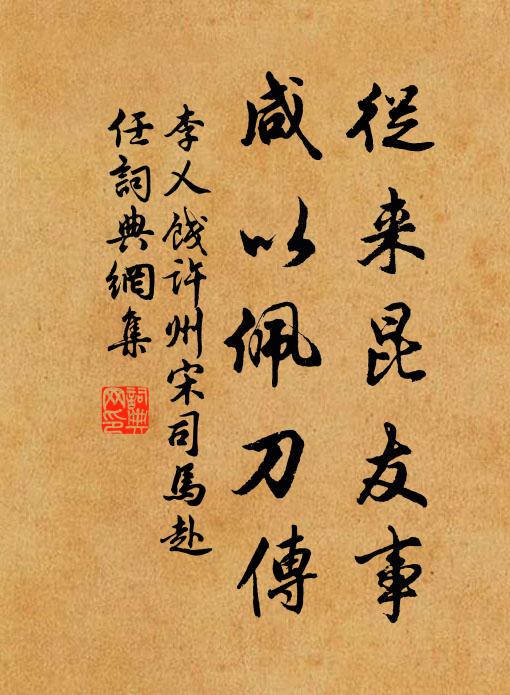 從来昆友事
咸以佩刀傳
李乂餞許州宋司馬赴
任詞典網集
詞典网印